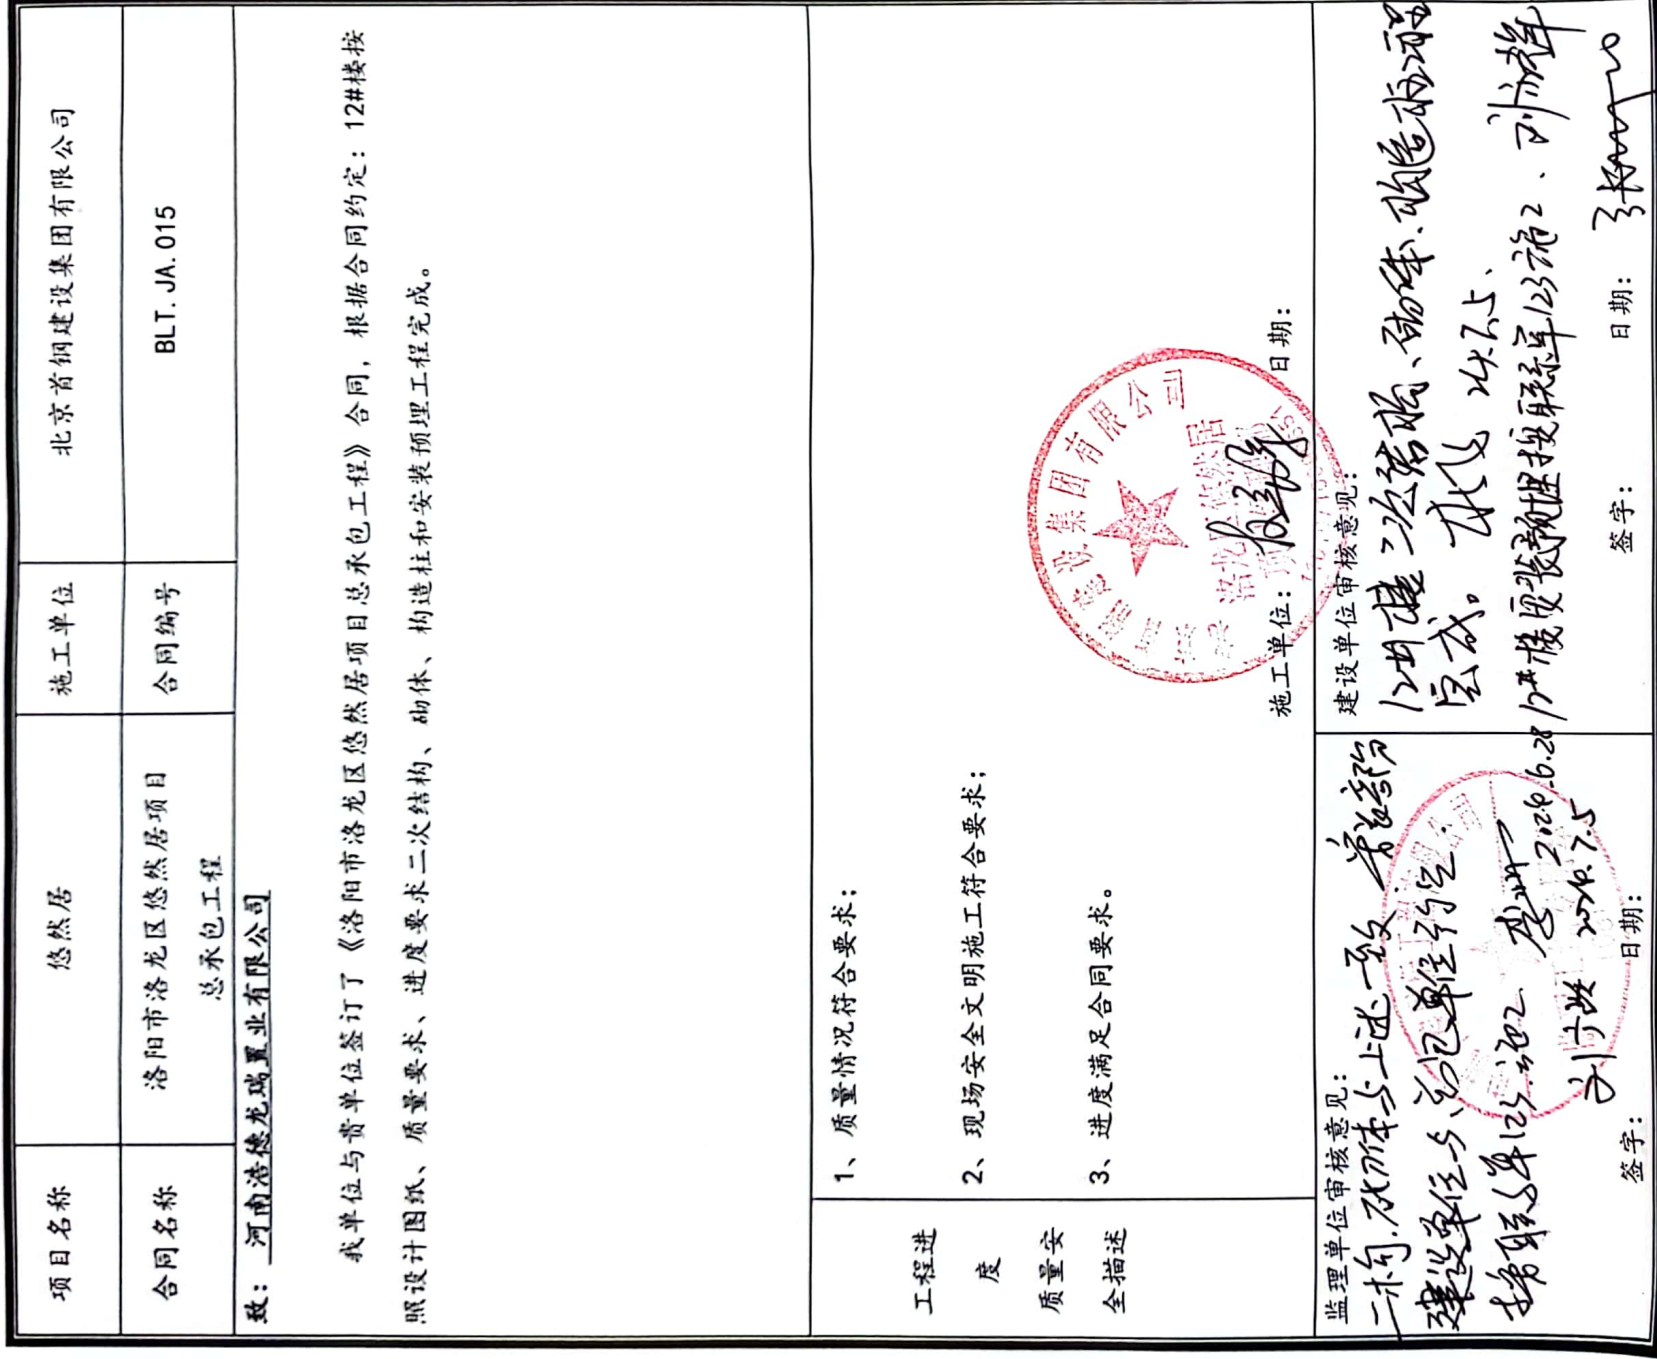 项目名称 悠然居 施工单位 北京首钢建设集团有限公司
合同名称 洛阳市洛龙区悠然居项目 合同编号 BLT.JA.015
总承包工程
致：河南浩德龙瑞置业有限公司
我单位与贵单位签订了《洛阳市洛龙区悠然居项目总承包工程》合同，根据合同约定：12#楼按
照设计图纸、质量要求、进度要求二次结构、砌体、构造柱和安装预埋工程完成。
工程进
度
质量安
全描述
1、质量情况符合要求；
2、现场安全文明施工符合要求；
3、进度满足合同要求。
建设集团有限公司
施工单位： 日期：
监理单位审核意见：
二构，砌体与上述一致
建设单位与总包单位
按联系单123施2 2024.6.28
2024.7.5
签字： 日期：
建设单位审核意见：
12#楼二次结构、砌体、构造柱工程
完成。 24.7.5
12#楼 预埋按联系单123施2、
签字： 日期：